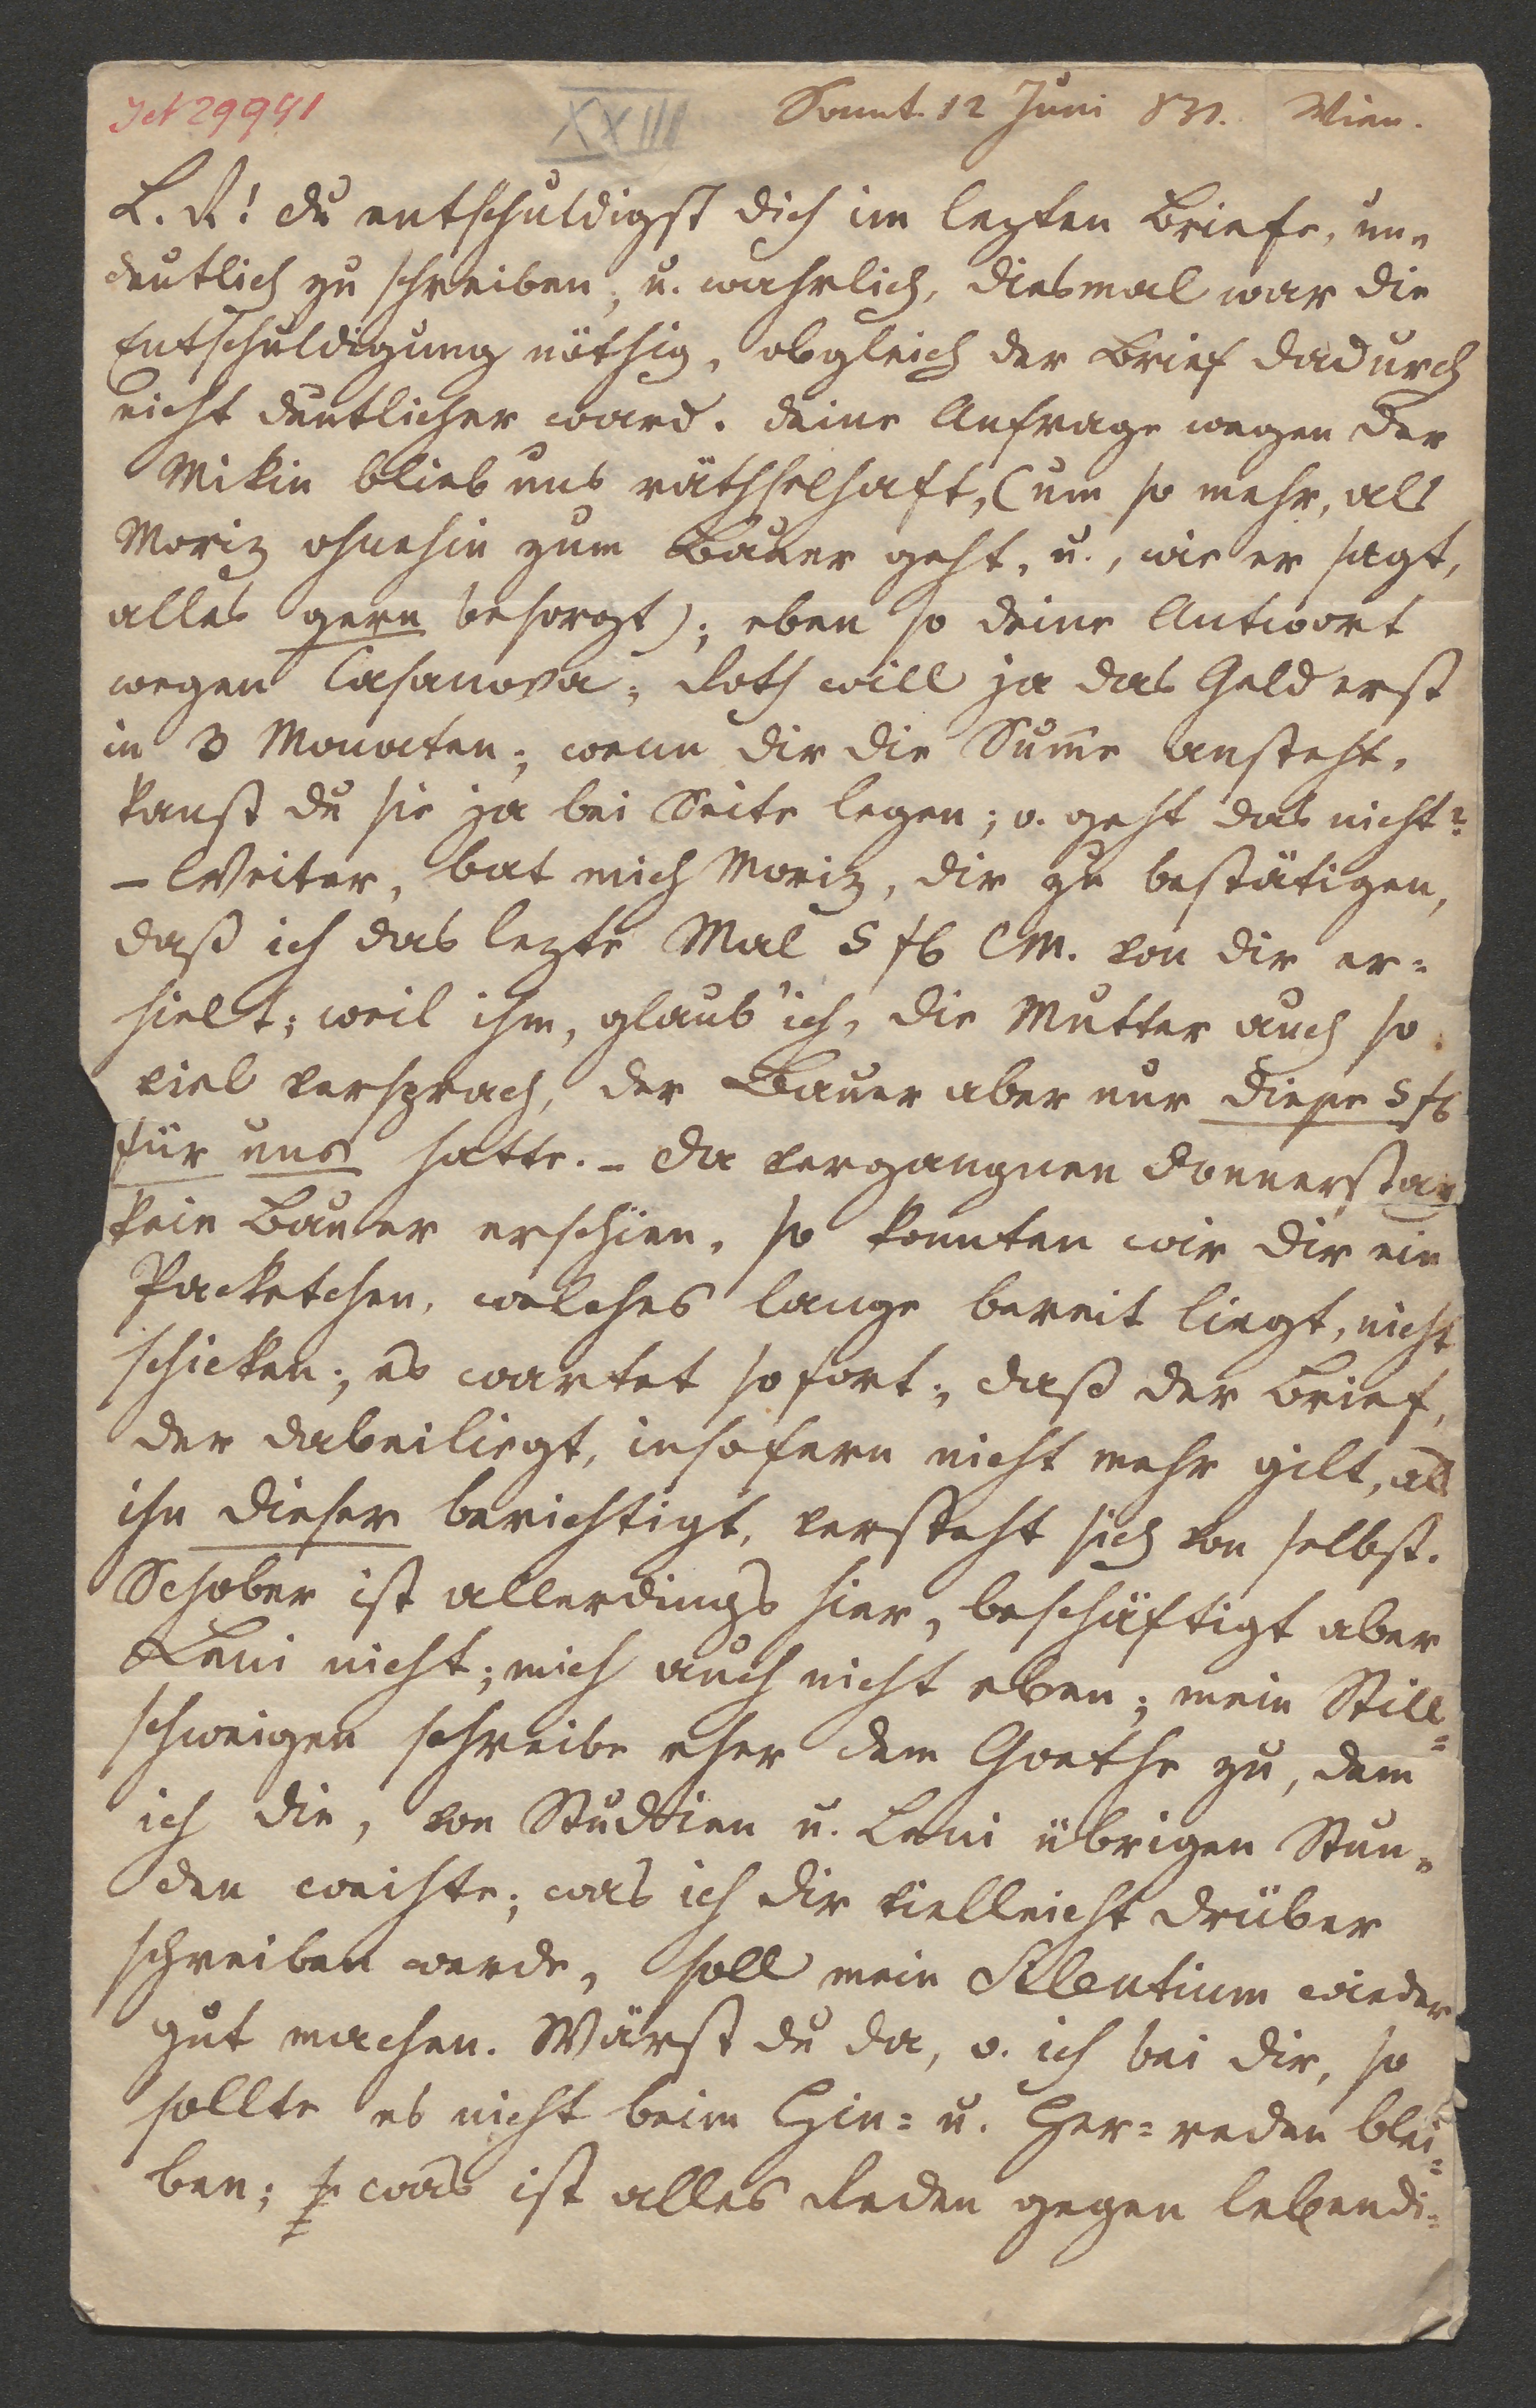 XXIII Sonnt. 12 Juni 831. Wien.
L. R! du entschuldigst dich im lezten Briefe, un-
deutlich zu schreiben, u. wahrlich, diesmal war die
Entschuldigung nöthig, obgleich der Brief dadurch
nicht deutlicher ward. deine Anfrage wegen der
Mikin blieb uns räthselhaft, (um so mehr, als
Moriz ohnehin zum Bauer geht, u., wie er sagt,
alles gern besorgt); eben so deine Antwort
wegen Casanova; Roth will ja das Geld erst
in 3 Monaten; wenn dir die Sum̄e ansteht,
kanst du sie ja bei Seite legen; o. geht das nicht?
– Weiter, bat mich Moriz, dir zu bestätigen,
daß ich das lezte Mal 5 fl CM. von dir er=
hielt; weil ihm, glaub' ich, die Mutter auch so
viel versprach, der Bauer aber nur diese 5 fl
für uns hatte. – da vergangnen Donnerstag
kein Bauer erschien, so konnten wir dir ein
Packetchen, welches lange bereit liegt, nicht
schicken; es wartet sofort; daß der Brief,
der dabeiliegt, insofern nicht mehr gilt, als
ihn dieser berichtigt, versteht sich von selbst.
Schober ist allerdings hier, beschäftigt aber
Leni nicht; mich auch nicht eben; mein Still=
schweigen schreibe eher dem Goethe zu, dem
ich die, von Studien u. Leni übrigen Stun-
den weihte; was ich dir vielleicht drüber
schreiben werde, soll mein Silentium wieder
gut machen. Wärst du da, o. ich bei dir, so
sollte es nicht beim Hin= u. Her=reden blei=
ben; was ist alles Reden gegen lebendi=